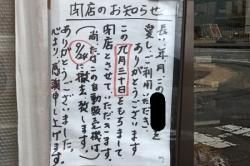 閉店のお知らせ
長い年月この
愛し、ご利用いただき、
ありがとうございます
この九月三十日をもちまして
閉店とさせていただきます。
(尚たばこ自動販売機は
9/24 撤去、致します。)
ありがとうございました。
心より感謝申し上げます。